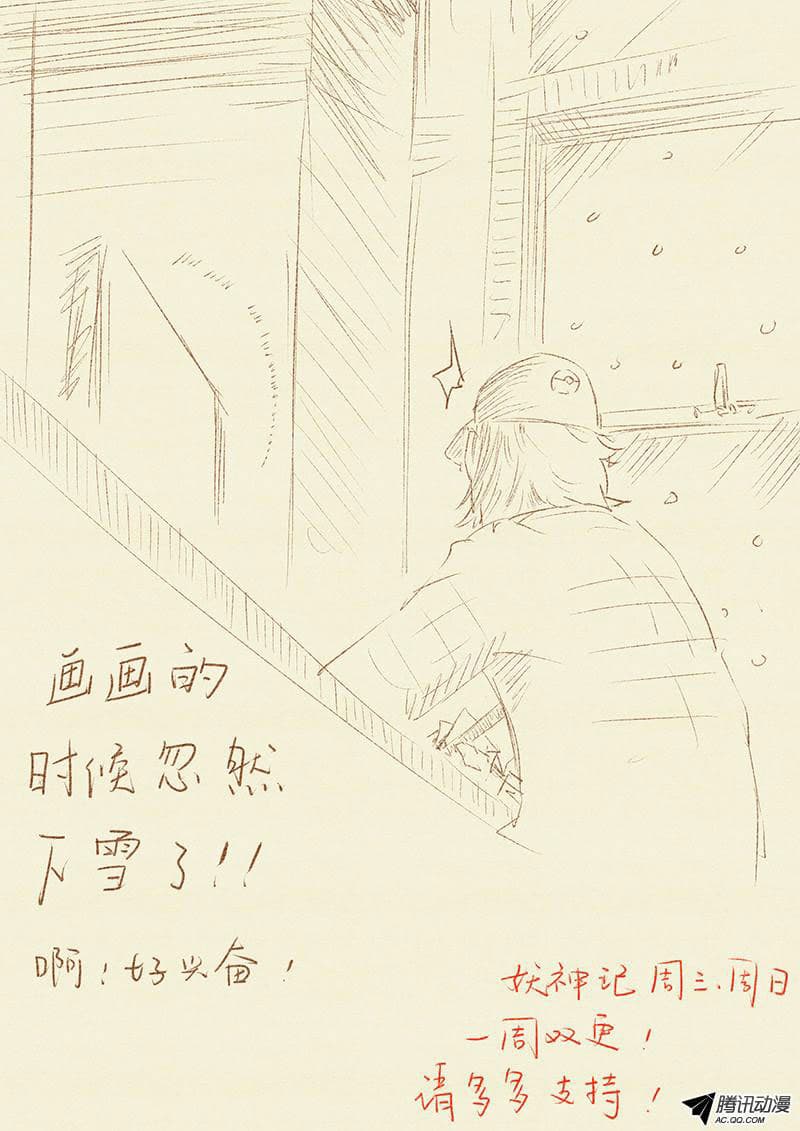 画画的
时候忽然
下雪了!!
啊!好兴奋!
妖神记 周三、周日
一周双更!
请多多支持!
腾讯动漫
AC.QQ.COM